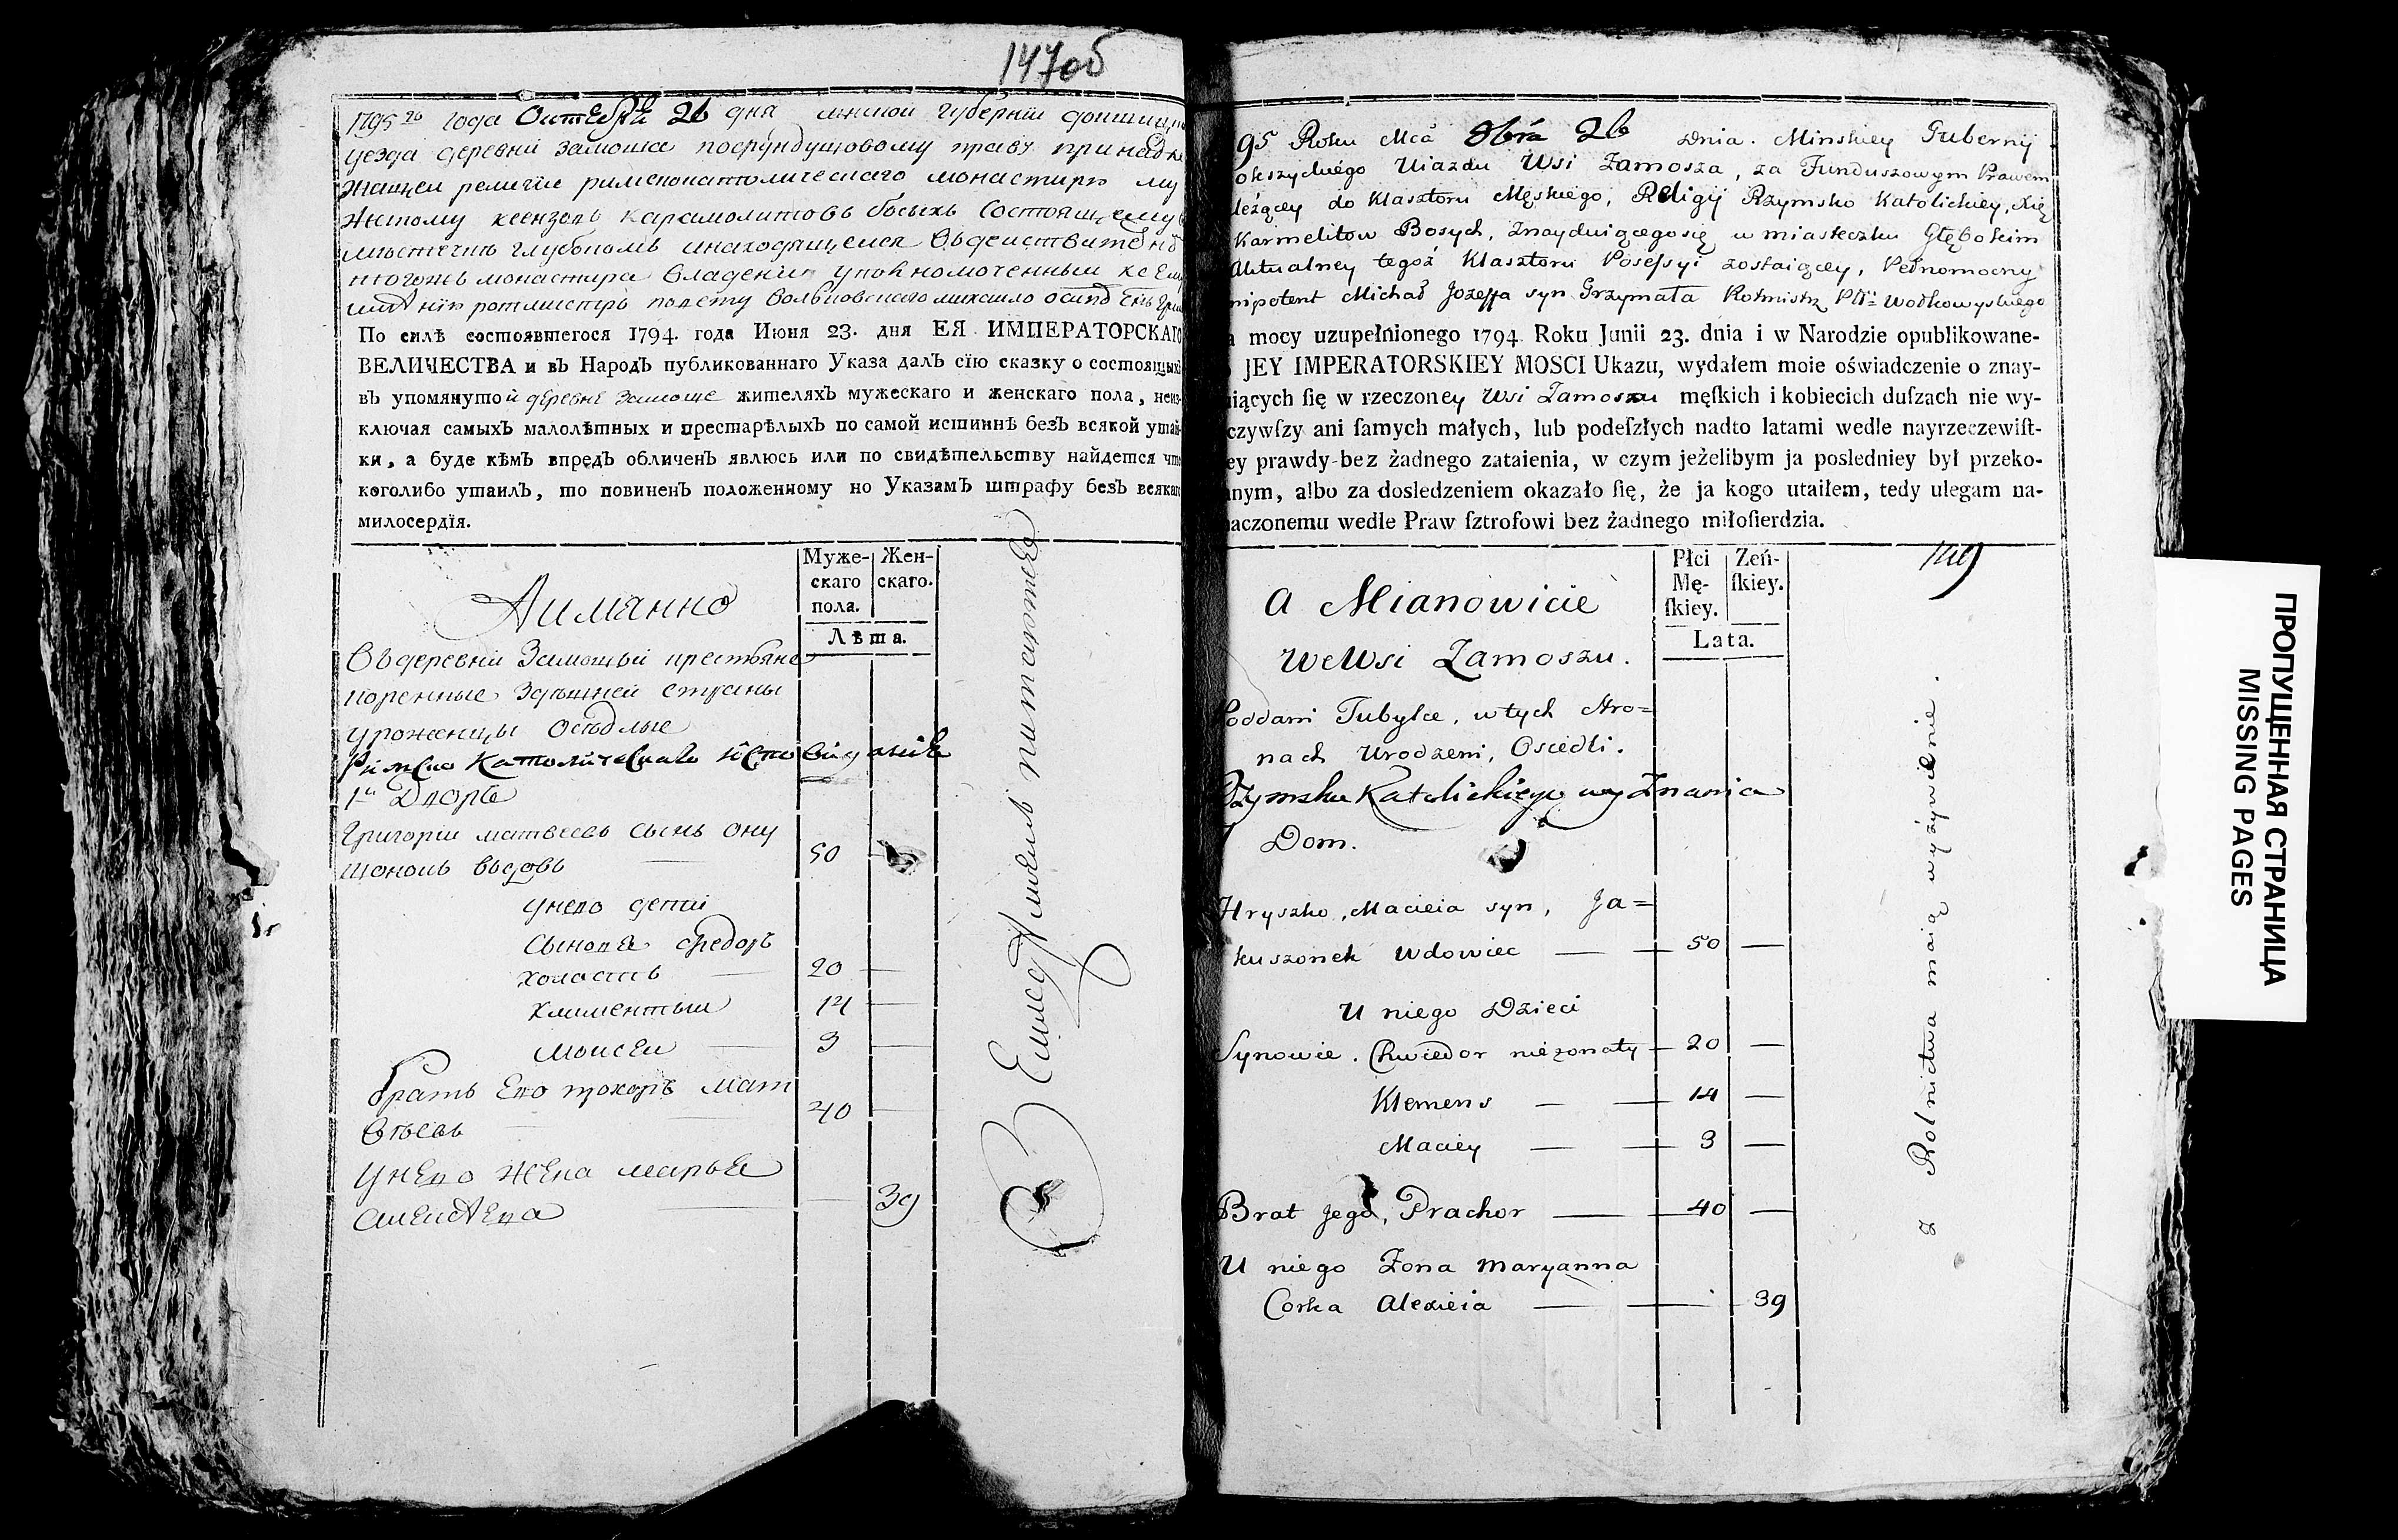 147об
1795го года Октебря 26 дня минской губернїи докшиц
уезда деревни замоша пофундушовому праву принадле
жащеи религїи римскокатолическаго монастиря му
жскому ксендзовъ кармолитовъ босыхъ состоящему
местечкъ глубокомъ инаходящемся въдействительно
тогожъ монастира владении уполномоченный
ротмистръ повету волковскаго михаило осипо
По силѣ состоявшегося 1794. года Июня 23. дня ЕЯ ИМПЕРАТОРСКАГО
ВЕЛИЧЕСТВА и въ Народъ публикованнаго Указа далъ сїю сказку о состоящихъ
въ упомянутой деревне Замоше жителяхъ мужескаго и женскаго пола, неиз-
ключая самыхъ малолѣтныхъ и престарѣлыхъ по самой истиннѣ безъ всякой утай-
ки, а буде кѣмъ впредъ обличенъ явлюсь или по свидѣтельству найдется что
коголибо утаилъ, то повиненъ положенному по Указамъ штрафу безъ всякаго
милосердїя.
Муже-
скаго
пола.
Жен-
скаго.
Лѣта.
Аимянно
Въдеревни Замошьи крестьяне
коренные Здешней страны
уроженцы Оседлые
Римско Католическаго Исповедания
1й Дворъ
Григории матвеевъ сынъ
вдовъ 50 —
унего дети
Сыновя федоръ
холостъ — 20 —
Климентыи 14 —
моисеи — 3 —
братъ Его прохоръ мат
веевъ — 40 —
унего жена марья
алексеева — — 39
пропитание
95 Roku Mca 8bra 26 Dnia. Minskiey Gubernij
okszyckiego Uiazdu Wsi Zamosza, za Funduszowym Prawem
leżącey do Klasztoru Męskiego, Religij Rzymsko Katolickiey, Xię
Karmelitow Bosych, Znayduiącego się w miasteczku Głębokim
Aktualney tegoż Klasztoru Posessyi zostaiącey, Pełnomocny
nipotent Michał Jozeffa syn Grzymała Rotmistrz Ptu Wołkowyskiego
mocy uzupełnionego 1794 Roku Junii 23. dnia i w Narodzie opublikowane-
JEY IMPERATORSKIEY MOSCI Ukazu, wydałem moie oświadczenie o znay-
iących ſię w rzeczoney Wsi Zamoszu męſkich i kobiecich duſzach nie wy-
czywſzy ani ſamych małych, lub podeſzłych nadto latami wedle nayrzeczewiſt-
ey prawdy bez żadnego zataienia, w czym jeżelibym ja posledniey był przeko-
nym, albo za dosledzeniem okazało ſię, że ja kogo utaiłem, tedy ulegam na-
aczonemu wedle Praw ſztrofowi bez żadnego miłoſierdzia.
Płci
Mę-
ſkiey.
Zeń-
ſkiey.
Lata.
149
A Mianowicie
We Wsi Zamoszu.
Poddani Tubylce, w tych Stro=
nach Urodzeni, Osiedli.
Rzymsko Katolickiego wyznania
1 Dom.
Hryszko, Macieia syn, Ja=
kuszonek Wdowiec — 50 —
U niego Dzieci
Synowie. Chwiedor nieżonaty 20 —
Klemens — 14 —
Maciey — 3 —
Brat Jego, Prachor — 40 —
U niego Żona Maryanna
Corka Alexieia — — 39
z Rolnictwa maią wyżywienie.
ПРОПУЩЕННАЯ СТРАНИЦА
MISSING PAGES